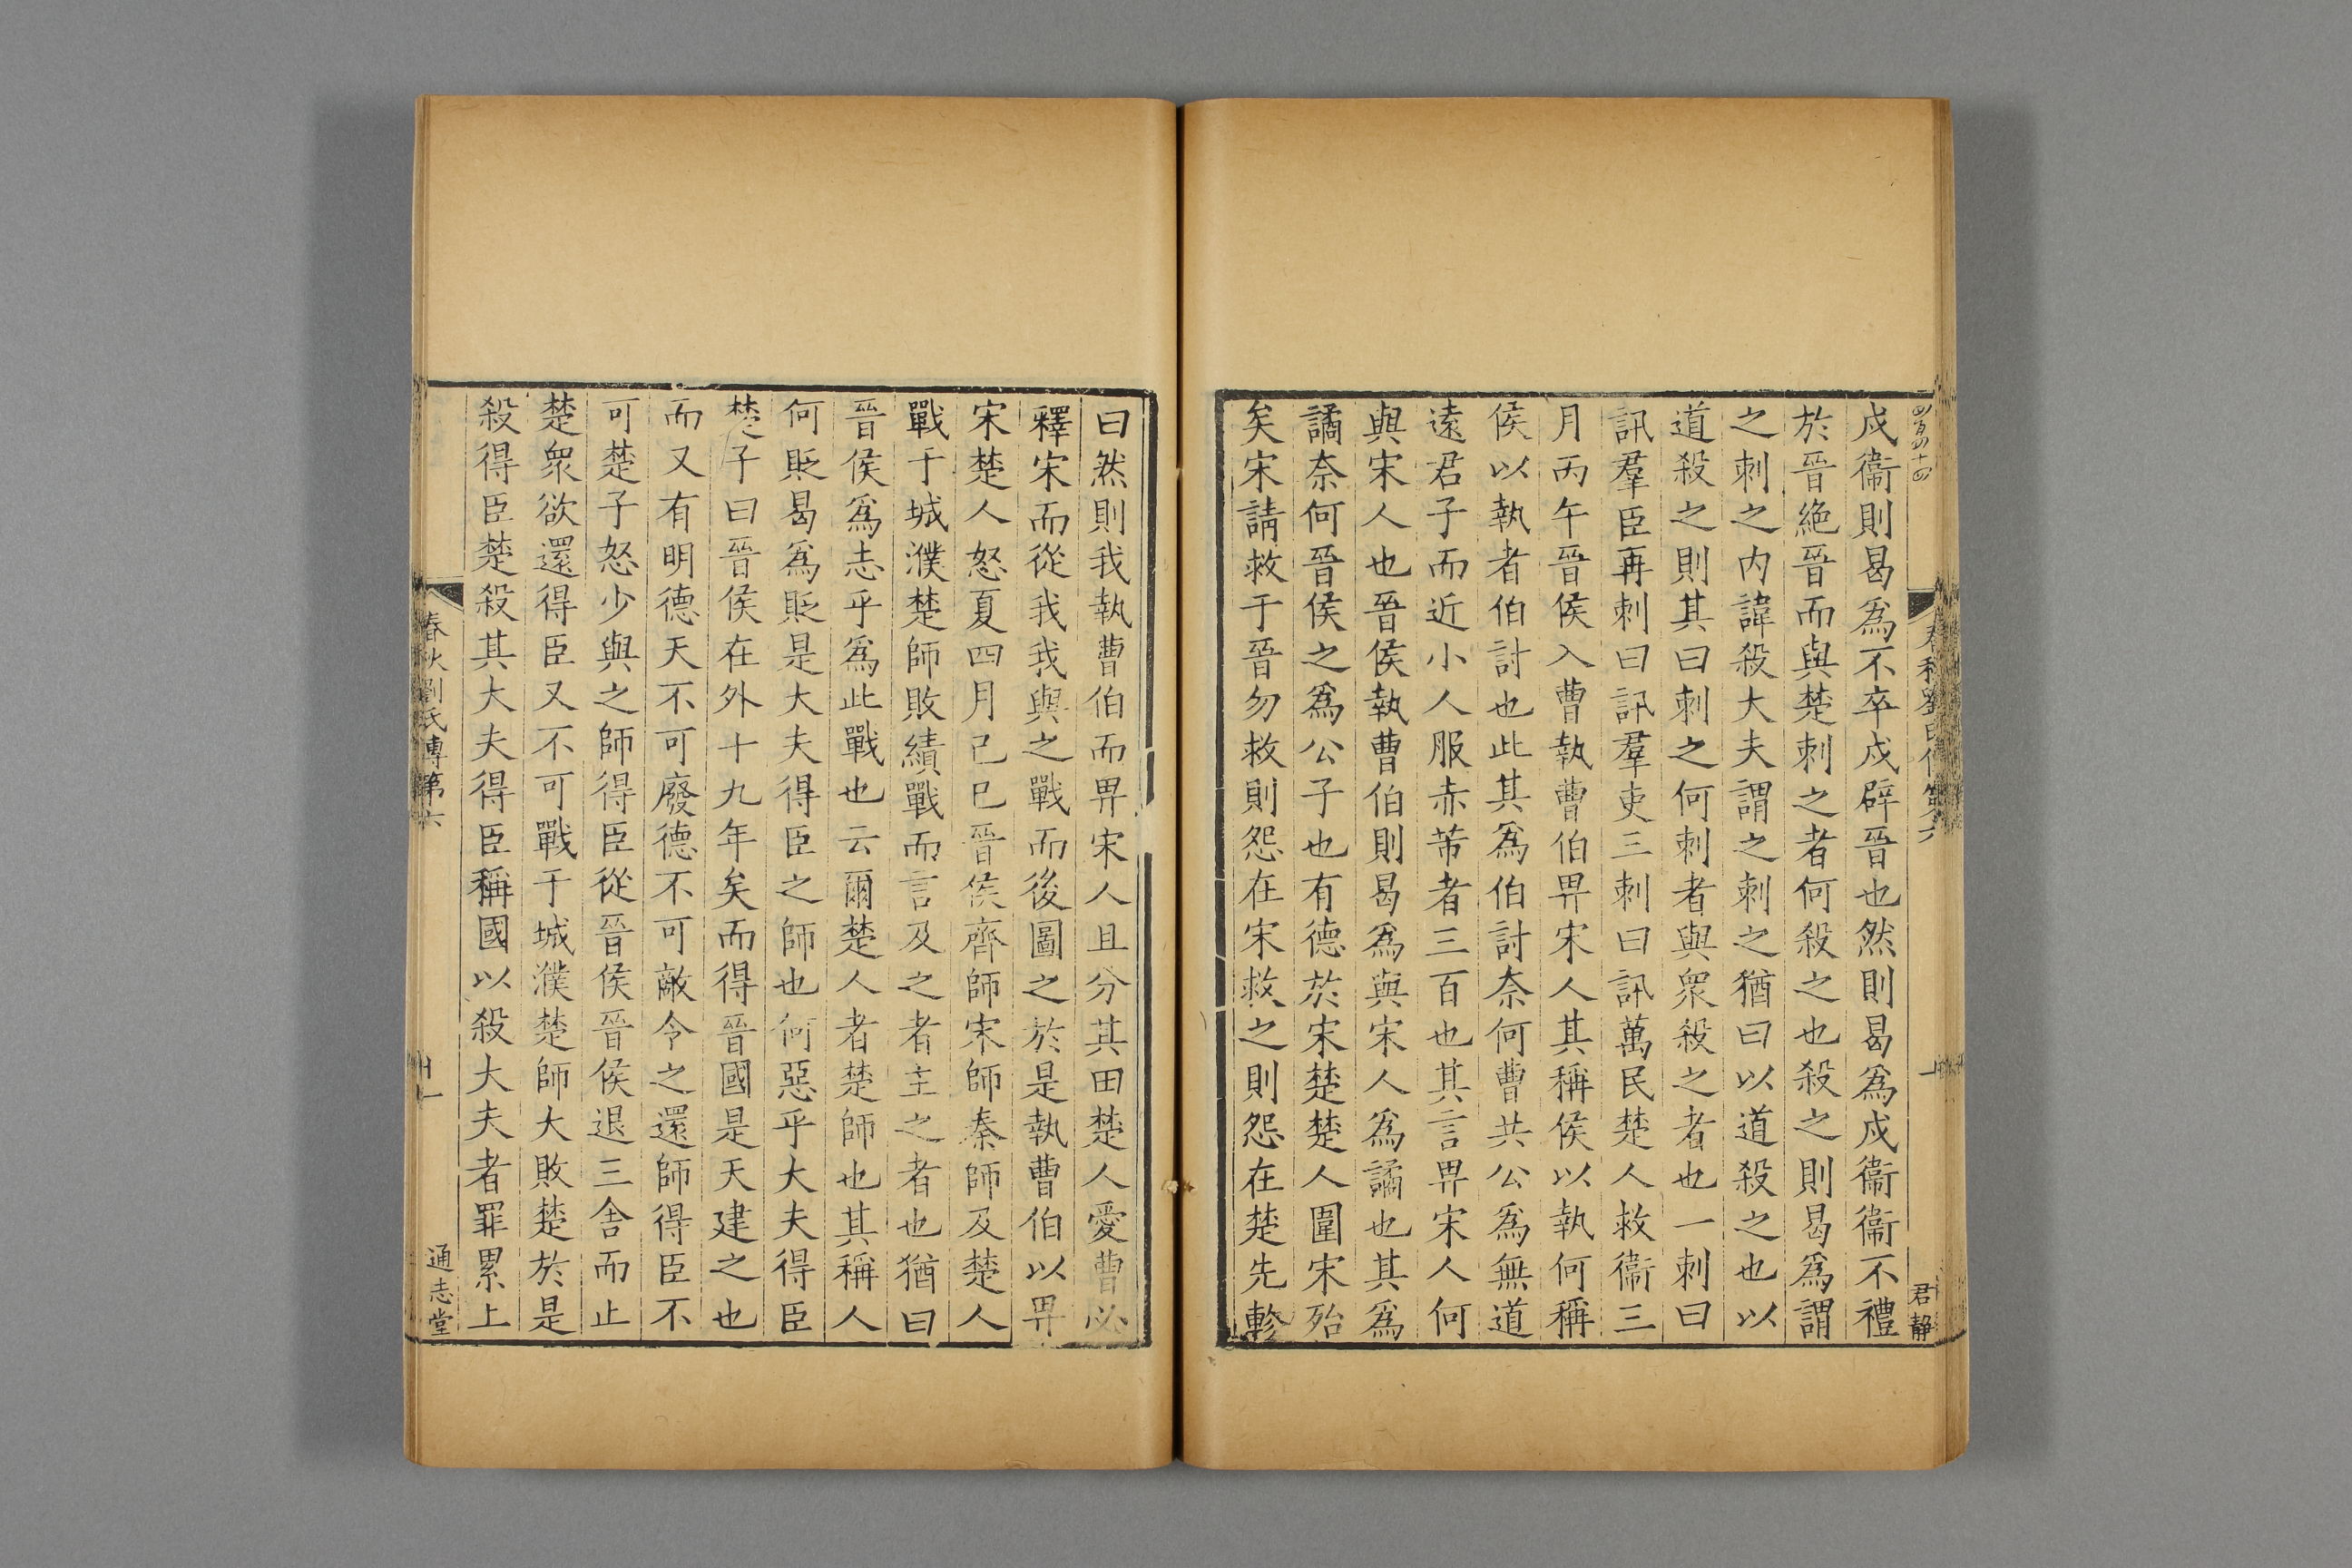 四百四十四
春秋劉氏傳第六
君靜
戍衞則曷爲不卒戍辟晉也然則曷爲戍衞衞不禮
於晉絶晉而與楚刺之者何殺之也殺之則曷爲謂
之刺之内諱殺大夫謂之刺之猶曰以道殺之也以
道殺之則其曰刺之何刺者與衆殺之者也一刺曰
訊羣臣再刺曰訊羣吏三刺曰訊萬民楚人救衞三
月丙午晉侯入曹執曹伯畀宋人其稱侯以執何稱
侯以執者伯討也此其爲伯討奈何曹共公爲無道
遠君子而近小人服赤芾者三百也其言畀宋人何
與宋人也晉侯執曹伯則曷爲與宋人爲譎也其爲
譎奈何晉侯之爲公子也有德於宋楚楚人圍宋殆
矣宋請救于晉勿救則怨在宋救之則怨在楚先軫
曰然則我執曹伯而畀宋人且分其田楚人愛曹必
釋宋而從我我與之戰而後圖之於是執曹伯以畀
宋楚人怒夏四月己巳晉侯齊師宋師秦師及楚人
戰于城濮楚師敗績戰而言及之者主之者也猶曰
晉侯爲志乎爲此戰也云爾楚人者楚師也其稱人
何貶曷爲貶是大夫得臣之師也何惡乎大夫得臣
楚子曰晉侯在外十九年矣而得晉國是天建之也
而又有明德天不可廢德不可敵令之還師得臣不
可楚子怒少與之師得臣從晉侯晉侯退三舍而止
楚衆欲還得臣又不可戰于城濮楚師大敗楚於是
殺得臣楚殺其大夫得臣稱國以殺大夫者罪累上
春秋劉氏傳第六
十一
通志堂